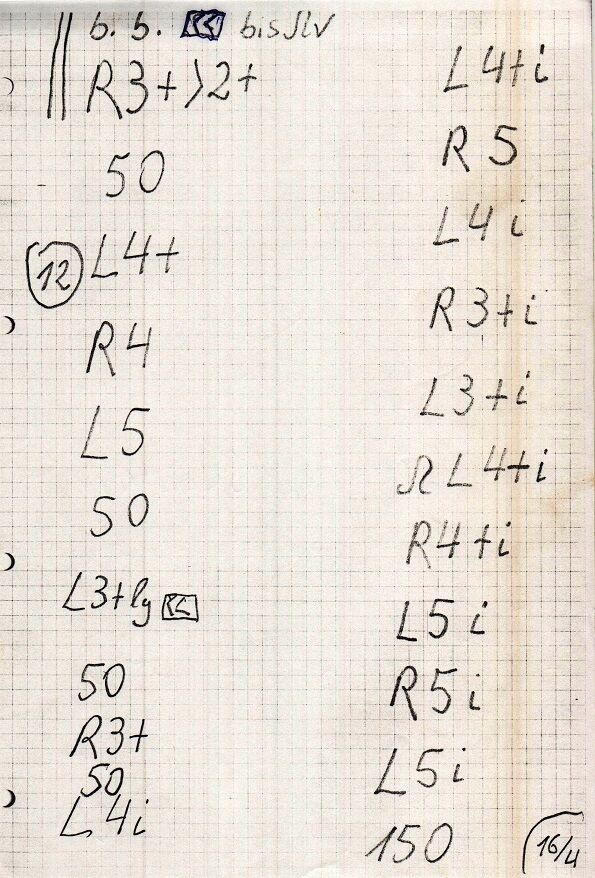 b. b. << bis
R3+>2+
50
12 L4+
R4
L5
50
L3+lg <<
50
R3+
50
L4i
L4+i
R5
L4i
R3+i
L3+i
L4+i
R4+i
L5i
R5i
L5i
150
16/4